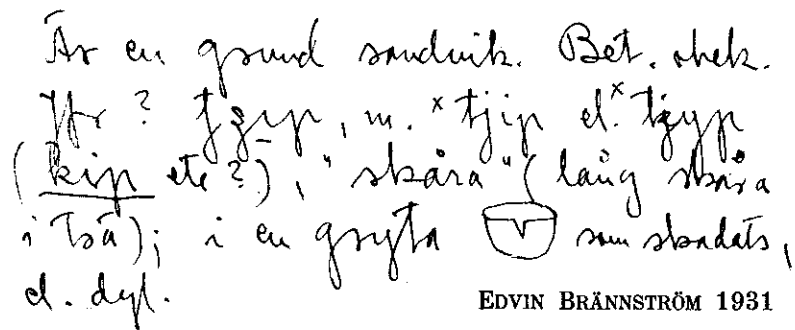 Är en grund sandvik. Bet. obek.
Jfr ? tjip, m. ˣtjip el. ˣtjyp
(kip etc?), "skåra" (lång skåra
i trä); i en gryta som skadats,
el. dyl.
EDVIN BRÄNNSTRÖM 1931